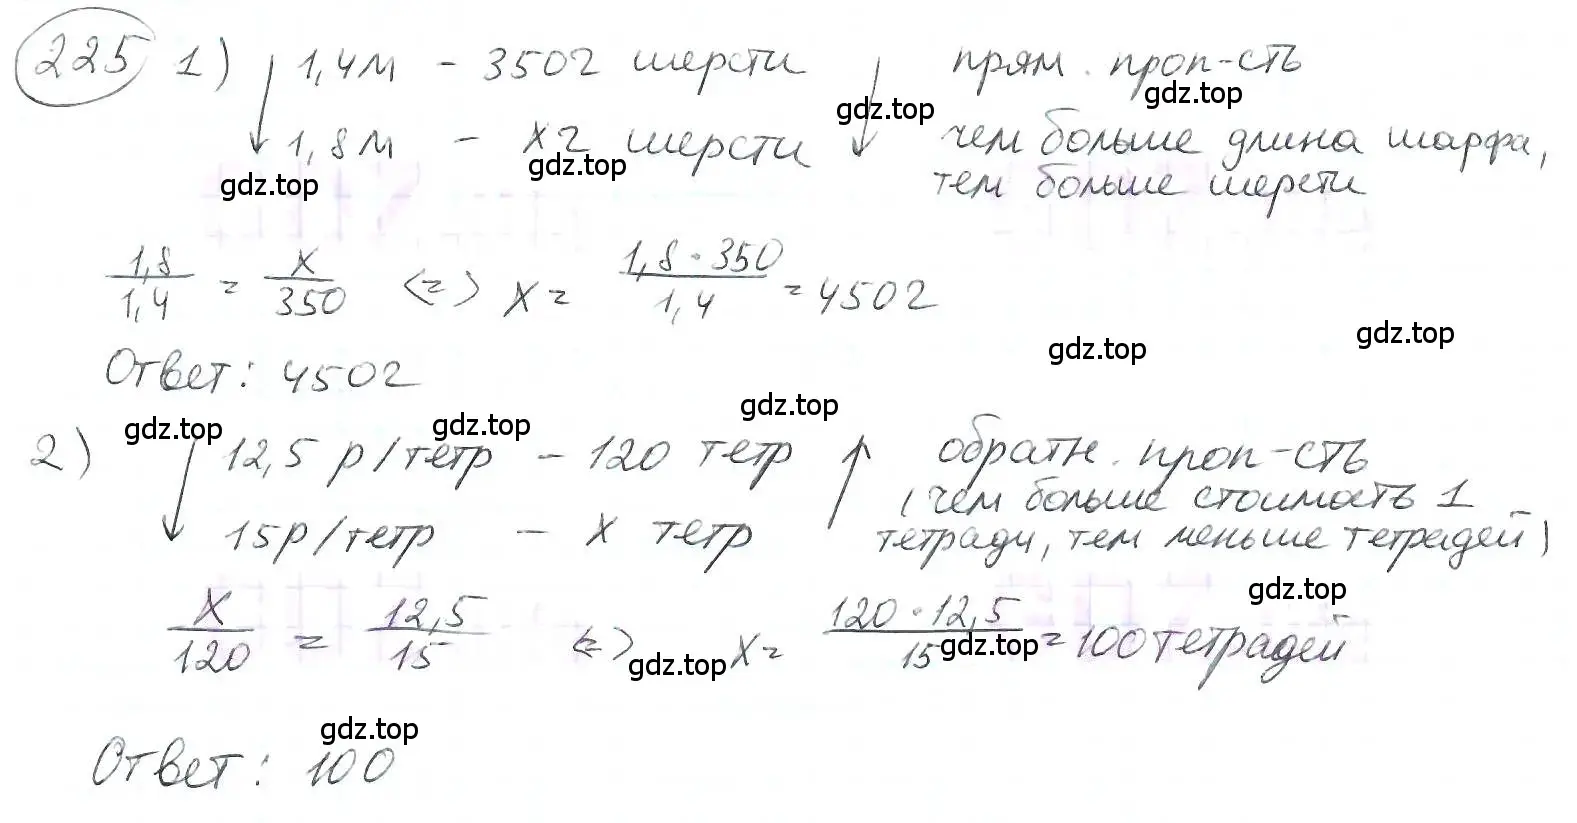 225 1) 1,4м - 350г шерсти прям. проп-сть
1,8м - x г шерсти чем больше длина шарфа,
тем больше шерсти
1,8/1,4 = x/350 <=> x = 1,8·350/1,4 = 450г
Ответ: 450г
2) 12,5 р/тетр - 120 тетр обратн. проп-сть
(чем больше стоимость 1
15р/тетр - x тетр тетради, тем меньше тетрадей)
x/120 = 12,5/15 <=> x = 120·12,5/15 = 100 тетрадей
Ответ: 100
gdz.top
gdz.top
gdz.top
gdz.top
gdz.top
gdz.top
gdz.top
gdz.top
gdz.top
gdz.top
gdz.top
gdz.top
gdz.top